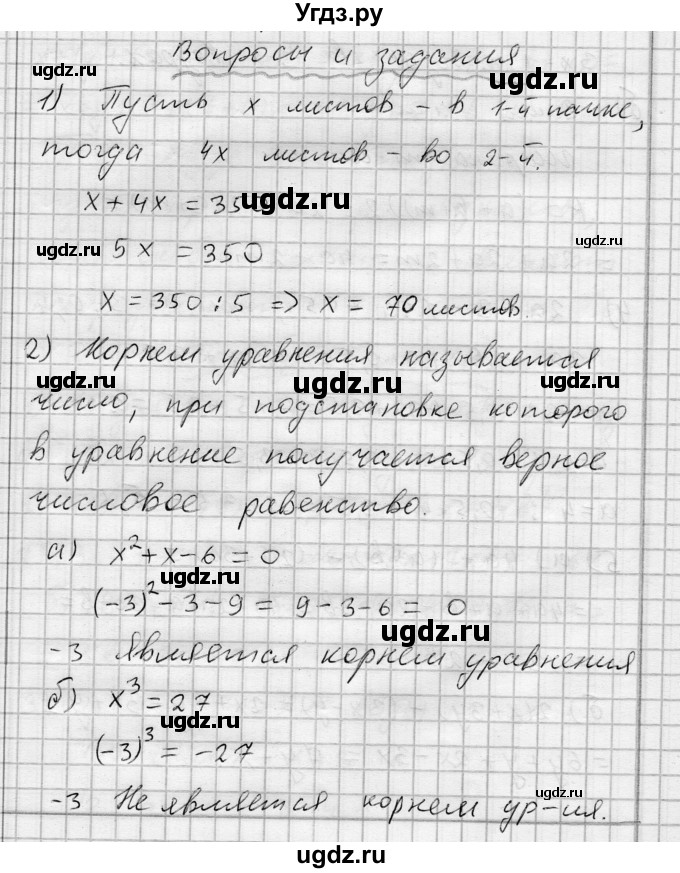 Угдз.ру
Вопросы и задания
ugdz.ru
ugdz.ru
1) Пусть x листов - в 1-й пачке,
ugdz.ru
тогда 4x листов - во 2-й.
x + 4x = 35
ugdz.ru
ugdz.ru
ugdz.ru
5x = 350
x = 350 : 5 => x = 70 листов.
2) Корнем уравнения называется
ugdz.ru
ugdz.ru
число, при подстановке которого
в уравнение получается верное
числовое равенство.
а) x² + x - 6 = 0
ugdz.ru
(-3)² - 3 - 9 = 9 - 3 - 6 = 0
ugdz.ru
-3 является корнем уравнения
б) x³ = 27
ugdz.ru
(-3)³ = -27
ugdz.ru
-3 Не является корнем ур-ия.
ugdz.ru